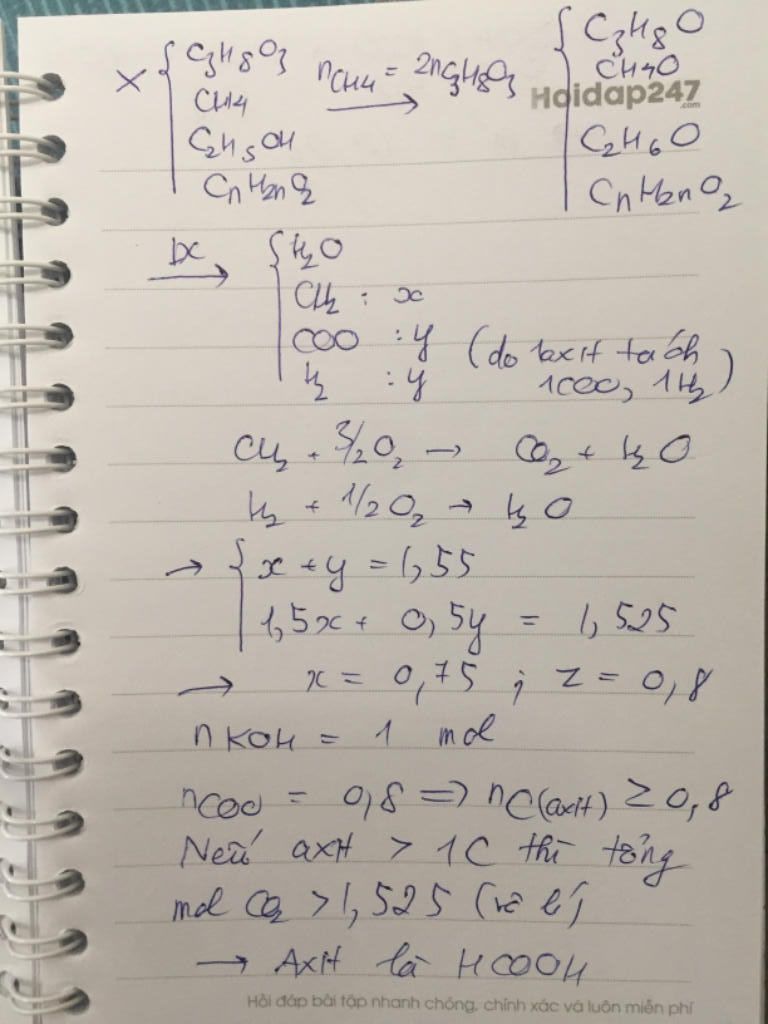 X { C3H8O3 nCH4 = 2nC3H8O3 → { C3H8O
CH4 CH4O
Hoidap247
.com
C2H5OH C2H6O
CnH2nO2 CnH2nO2
ĐC → { H2O
CH2 : x
COO : y (do 1axit tách
H2 : y 1COO, 1H2)
CH2 + 3/2O2 → CO2 + H2O
H2 + 1/2O2 → H2O
→ { x + y = 1,55
1,5x + 0,5y = 1,525
→ x = 0,75 ; z = 0,8
nKOH = 1 mol
nCOO = 0,8 => nC(axit) ≥ 0,8
Nếu axit > 1C thì tổng
mol CO2 > 1,525 (vô lí)
→ Axit là HCOOH
Hỏi đáp bài tập nhanh chóng, chính xác và luôn miễn phí